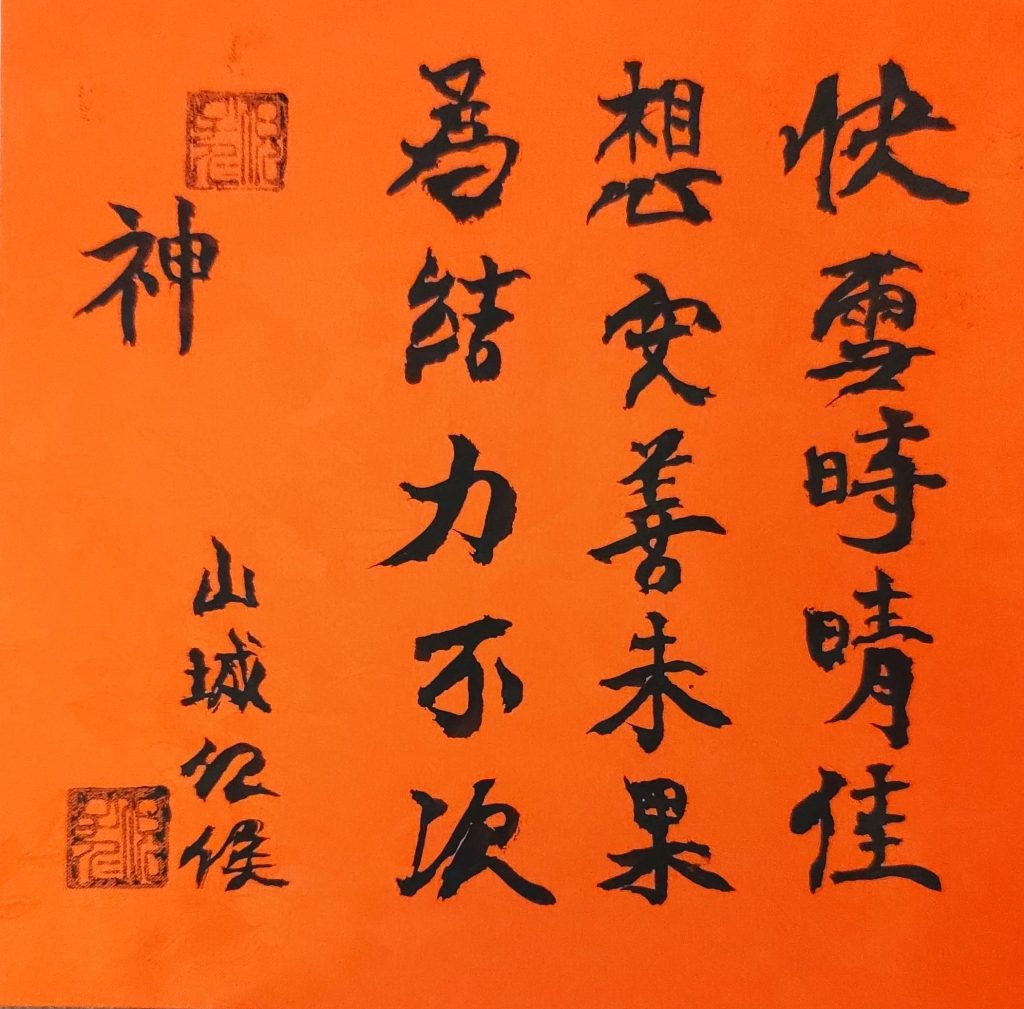 快雪時晴佳
想安善未果
為結力不次
神
山城倪侯